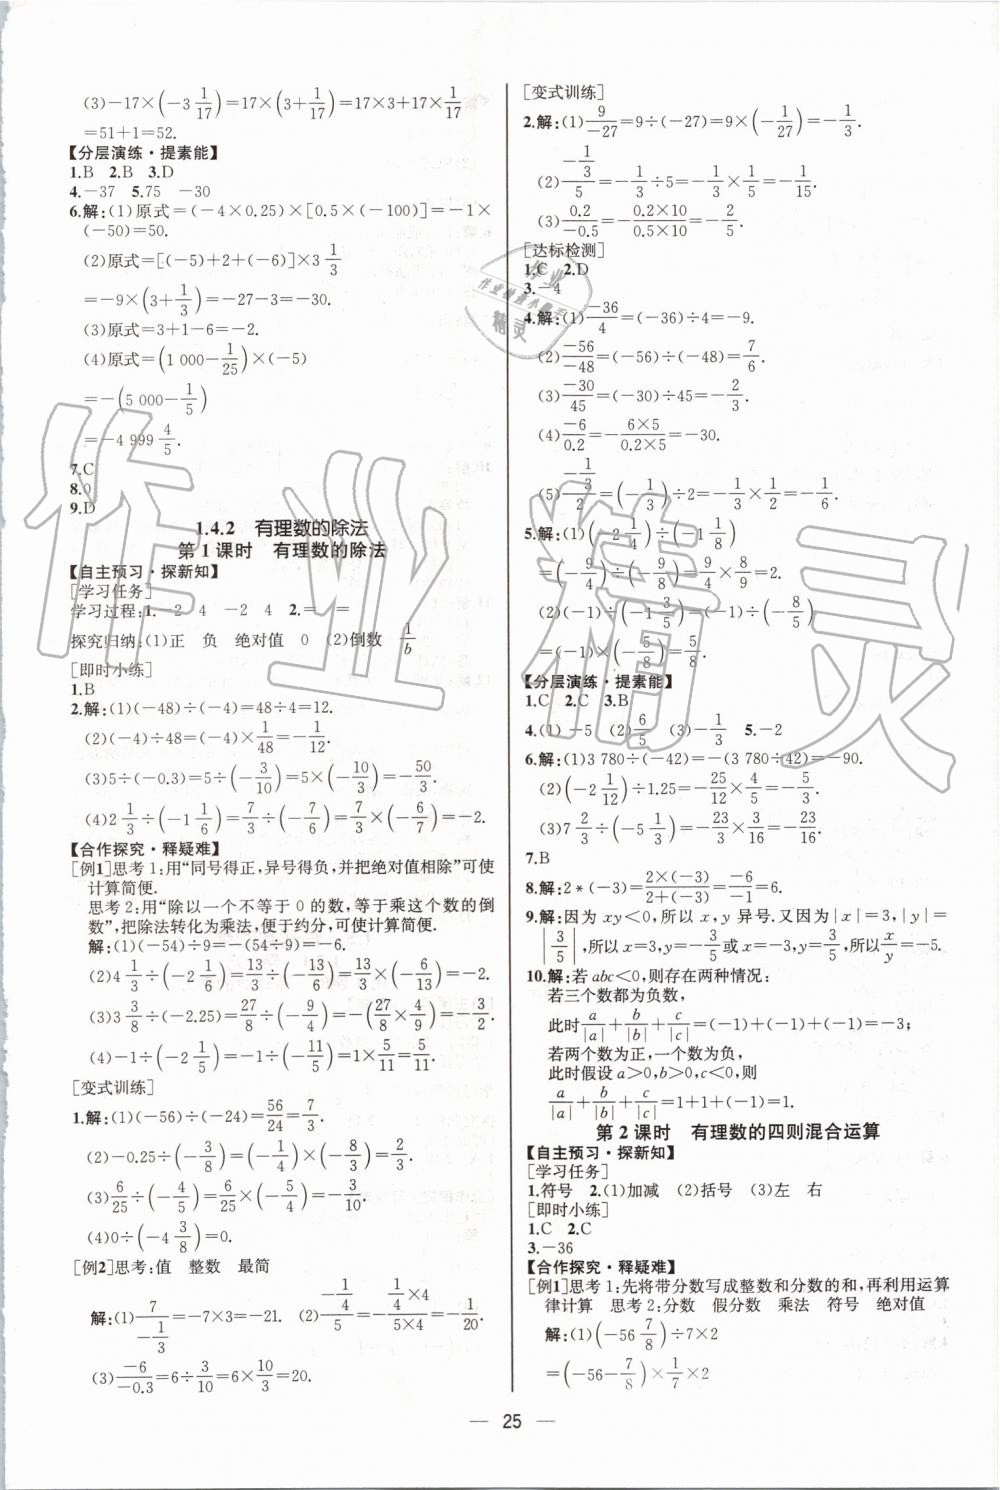 (3)-17×(-3 1/17)=17×(3+1/17)=17×3+17×1/17
=51+1=52.
【分层演练·提素能】
1.B 2.B 3.D
4.-37 5.75 -30
6.解:(1)原式=(-4×0.25)×[0.5×(-100)]=-1×
(-50)=50.
(2)原式=[(-5)+2+(-6)]×3 1/3
=-9×(3+1/3)=-27-3=-30.
(3)原式=3+1-6=-2.
(4)原式=(1 000-1/25)×(-5)
=-(5 000-1/5)
=-4 999 4/5.
7.C
8.0
9.D
1.4.2 有理数的除法
第1课时 有理数的除法
【自主预习·探新知】
[学习任务]
学习过程:1.-2 4 -2 4 2.= =
探究归纳:(1)正 负 绝对值 0 (2)倒数 1/b
[即时小练]
1.B
2.解:(1)(-48)÷(-4)=48÷4=12.
(2)(-4)÷48=(-4)×1/48=-1/12.
(3)5÷(-0.3)=5÷(-3/10)=5×(-10/3)=-50/3.
(4)2 1/3÷(-1 1/6)=7/3÷(-7/6)=7/3×(-6/7)=-2.
【合作探究·释疑难】
[例1]思考1:用“同号得正,异号得负,并把绝对值相除”可使
计算简便.
思考2:用“除以一个不等于0的数,等于乘这个数的倒
数”,把除法转化为乘法,便于约分,可使计算简便.
解:(1)(-54)÷9=-(54÷9)=-6.
(2)4 1/3÷(-2 1/6)=13/3÷(-13/6)=13/3×(-6/13)=-2.
(3)3 3/8÷(-2.25)=27/8÷(-9/4)=-(27/8×4/9)=-3/2.
(4)-1÷(-2 1/5)=-1÷(-11/5)=1×5/11=5/11.
[变式训练]
1.解:(1)(-56)÷(-24)=56/24=7/3.
(2)-0.25÷(-3/8)=(-1/4)×(-8/3)=2/3.
(3)6/25÷(-4/5)=6/25×(-5/4)=-3/10.
(4)0÷(-4 3/8)=0.
[例2]思考:值 整数 最简
解:(1)7/(-1/3)=-7×3=-21. (2)(-1/4)/5=-(1/4×4)/(5×4)=-1/20.
(3)-6/-0.3=6÷3/10=6×10/3=20.
[变式训练]
2.解:(1)9/-27=9÷(-27)=9×(-1/27)=-1/3.
(2)(-1/3)/5=-1/3÷5=-1/3×1/5=-1/15.
(3)0.2/-0.5=-0.2×10/0.5×10=-2/5.
[达标检测]
1.C 2.D
3.-4
4.解:(1)-36/4=(-36)÷4=-9.
(2)-56/-48=(-56)÷(-48)=7/6.
(3)-30/45=(-30)÷45=-2/3.
(4)-6/0.2=-6×5/0.2×5=-30.
(5)(-1/3)/2=(-1/3)÷2=-1/3×1/2=-1/6.
5.解:(1)(-2 1/4)÷(-1 1/8)
=(-9/4)÷(-9/8)=9/4×8/9=2.
(2)(-1)÷(-1 3/5)=(-1)÷(-8/5)
=(-1)×(-5/8)=5/8.
【分层演练·提素能】
1.C 2.C 3.B
4.(1)-5 (2)6/5 (3)-1/3 5.-2
6.解:(1)3 780÷(-42)=-(3 780÷42)=-90.
(2)(-2 1/12)÷1.25=-25/12×4/5=-5/3.
(3)7 2/3÷(-5 1/3)=-23/3×3/16=-23/16.
7.B
8.解:2*(-3)=2×(-3)/2+(-3)=-6/-1=6.
9.解:因为xy<0,所以x,y异号.又因为|x|=3,|y|=
|3/5|,所以x=3,y=-3/5或x=-3,y=3/5,所以x/y=-5.
10.解:若abc<0,则存在两种情况:
若三个数都为负数,
此时a/|a|+b/|b|+c/|c|=(-1)+(-1)+(-1)=-3;
若两个数为正,一个数为负,
此时假设a>0,b>0,c<0,则
a/|a|+b/|b|+c/|c|=1+1+(-1)=1.
第2课时 有理数的四则混合运算
【自主预习·探新知】
[学习任务]
1.符号 2.(1)加减 (2)括号 (3)左 右
[即时小练]
1.C 2.C
3.-36
【合作探究·释疑难】
[例1]思考1:先将带分数写成整数和分数的和,再利用运算
律计算 思考2:分数 假分数 乘法 符号 绝对值
解:(1)(-56 7/8)÷7×2
=(-56-7/8)×1/7×2
— 25 —
作业精灵